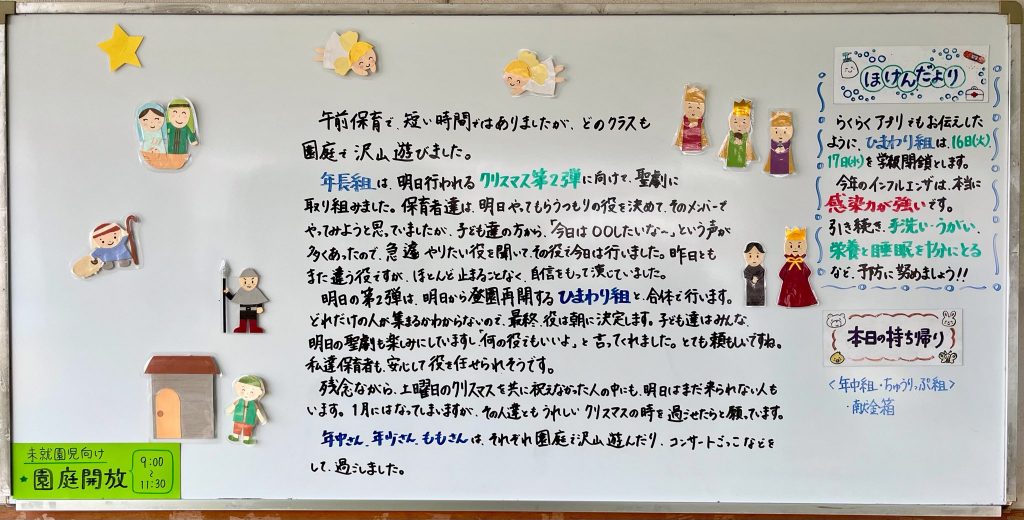 午前保育で、短い時間ではありましたが、どのクラスも
園庭で沢山遊びました。
年長組は、明日行われるクリスマス第2弾に向けて、聖劇に
取り組みました。保育者達は、明日やってもらうつもりの役を決めて、そのメンバーで
やってみようと思っていましたが、子ども達の方から、「今日は〇〇したいな〜」という声が
多くあったので、急遽やりたい役を聞いて、その役で今日は行いました。昨日とも
また違う役ですが、ほとんど止まることなく、自信をもって演じていました。
明日の第2弾は、明日から登園再開するひまわり組と、合体で行います。
どれだけの人が集まるかわからないので、最終、役は朝に決定します。子ども達はみんな、
明日の聖劇も楽しみにしていますし「何の役でもいいよ」と言ってくれました。とても頼もしいですね。
私達保育者も、安心して役を任せられそうです。
残念ながら、土曜日のクリスマスを共に祝えなかった人の中にも、明日はまだ来られない人も
います。1月にはなってしまいますが、その人達ともうれしいクリスマスの時を過ごせたらと願っています。
年中さん、年少さん、ももさんは、それぞれ園庭で沢山遊んだり、コンサートごっこなどを
して、過ごしました。
ほけんだより
らくらくアプリでもお伝えした
ように、ひまわり組は、16日(火)、
17日(水)を学級閉鎖とします。
今年のインフルエンザは、本当に
感染力が強いです。
引き続き、手洗い・うがい、
栄養と睡眠を十分にとる
など、予防に努めましょう!!
本日の持ち帰り
<年中組・ちゅうりっぷ組>
・献金箱
未就園児向け
★園庭開放
9:00
〜
11:30